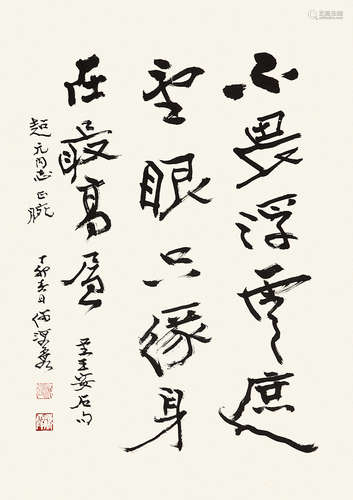 不畏浮雲遮
望眼只緣身
在最高層
王安石句
超元同志正腕
丁卯春日